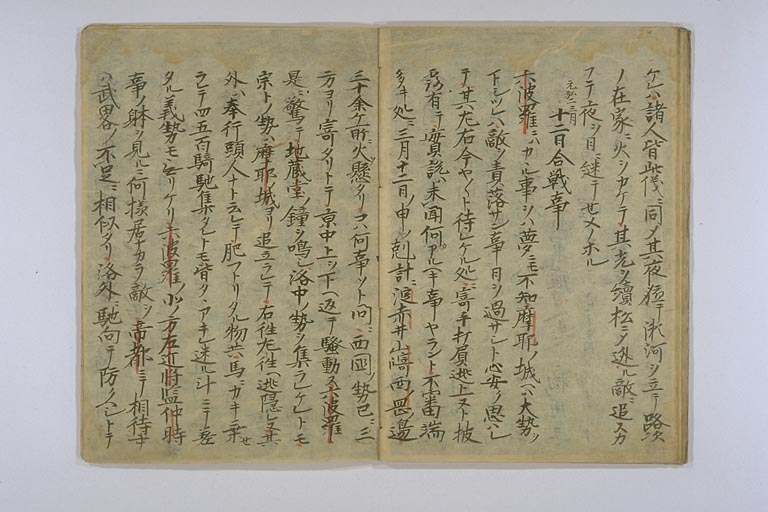 ケレハ諸人皆此儀ニ同シ其夜猶テ氷河ヲ立テ路次
ノ在家ニ火ヲカケテ其光ヲ續松ニシテ逃ル敵ニ追スカ
フテ夜ヲ日ニ迷テセメノホル
元弘三三月 十二日合戦事
六波羅ニハカヽル事ヲハ夢ニモ不知摩耶ノ城ヘハ大勢ヲ
下シツレハ敵ヲ責落サン事日ヲ過サシト心安ク思ハレ
テ其左右今ヤヽト待レケル処ニ寄手打負逃上ストハ披
露有テ實説ハ未聞何ナル事ヤラント不審端
多キ処ニ三月十二日ノ申ノ剋計ニ淀赤井山崎西岡邊
三十余ケ所火懸タリコハ何事ソト問ニ西国ノ勢已ニ三
方ヨリ寄タリトテ京中上ヲ下ヘ返テ騒動ス六波羅
是ニ驚テ地蔵堂ノ鐘ヲ鳴シ洛中ノ勢ヲ集ラレケレトモ
宗トノ勢ハ摩耶ノ城ヨリ追立ラレテ右往左往ヘ逃隠レヌ其
外ハ奉行頭人ナト云レテ肥フトリタル物共馬ニカキ乗セ
ラレテ四五百騎馳集タレトモ皆タヽアキレ迷ル計ニテ差
タル義勢モ無リケリ六波羅ノ北ノ方左近将監仲時
事ノ躰ヲ見ルニ何様居ナカラ敵ヲ帝都ニテ相待キ
ハ武畧ノ不足ニ相似タリ洛外ニ馳向テ防クヘシトテ